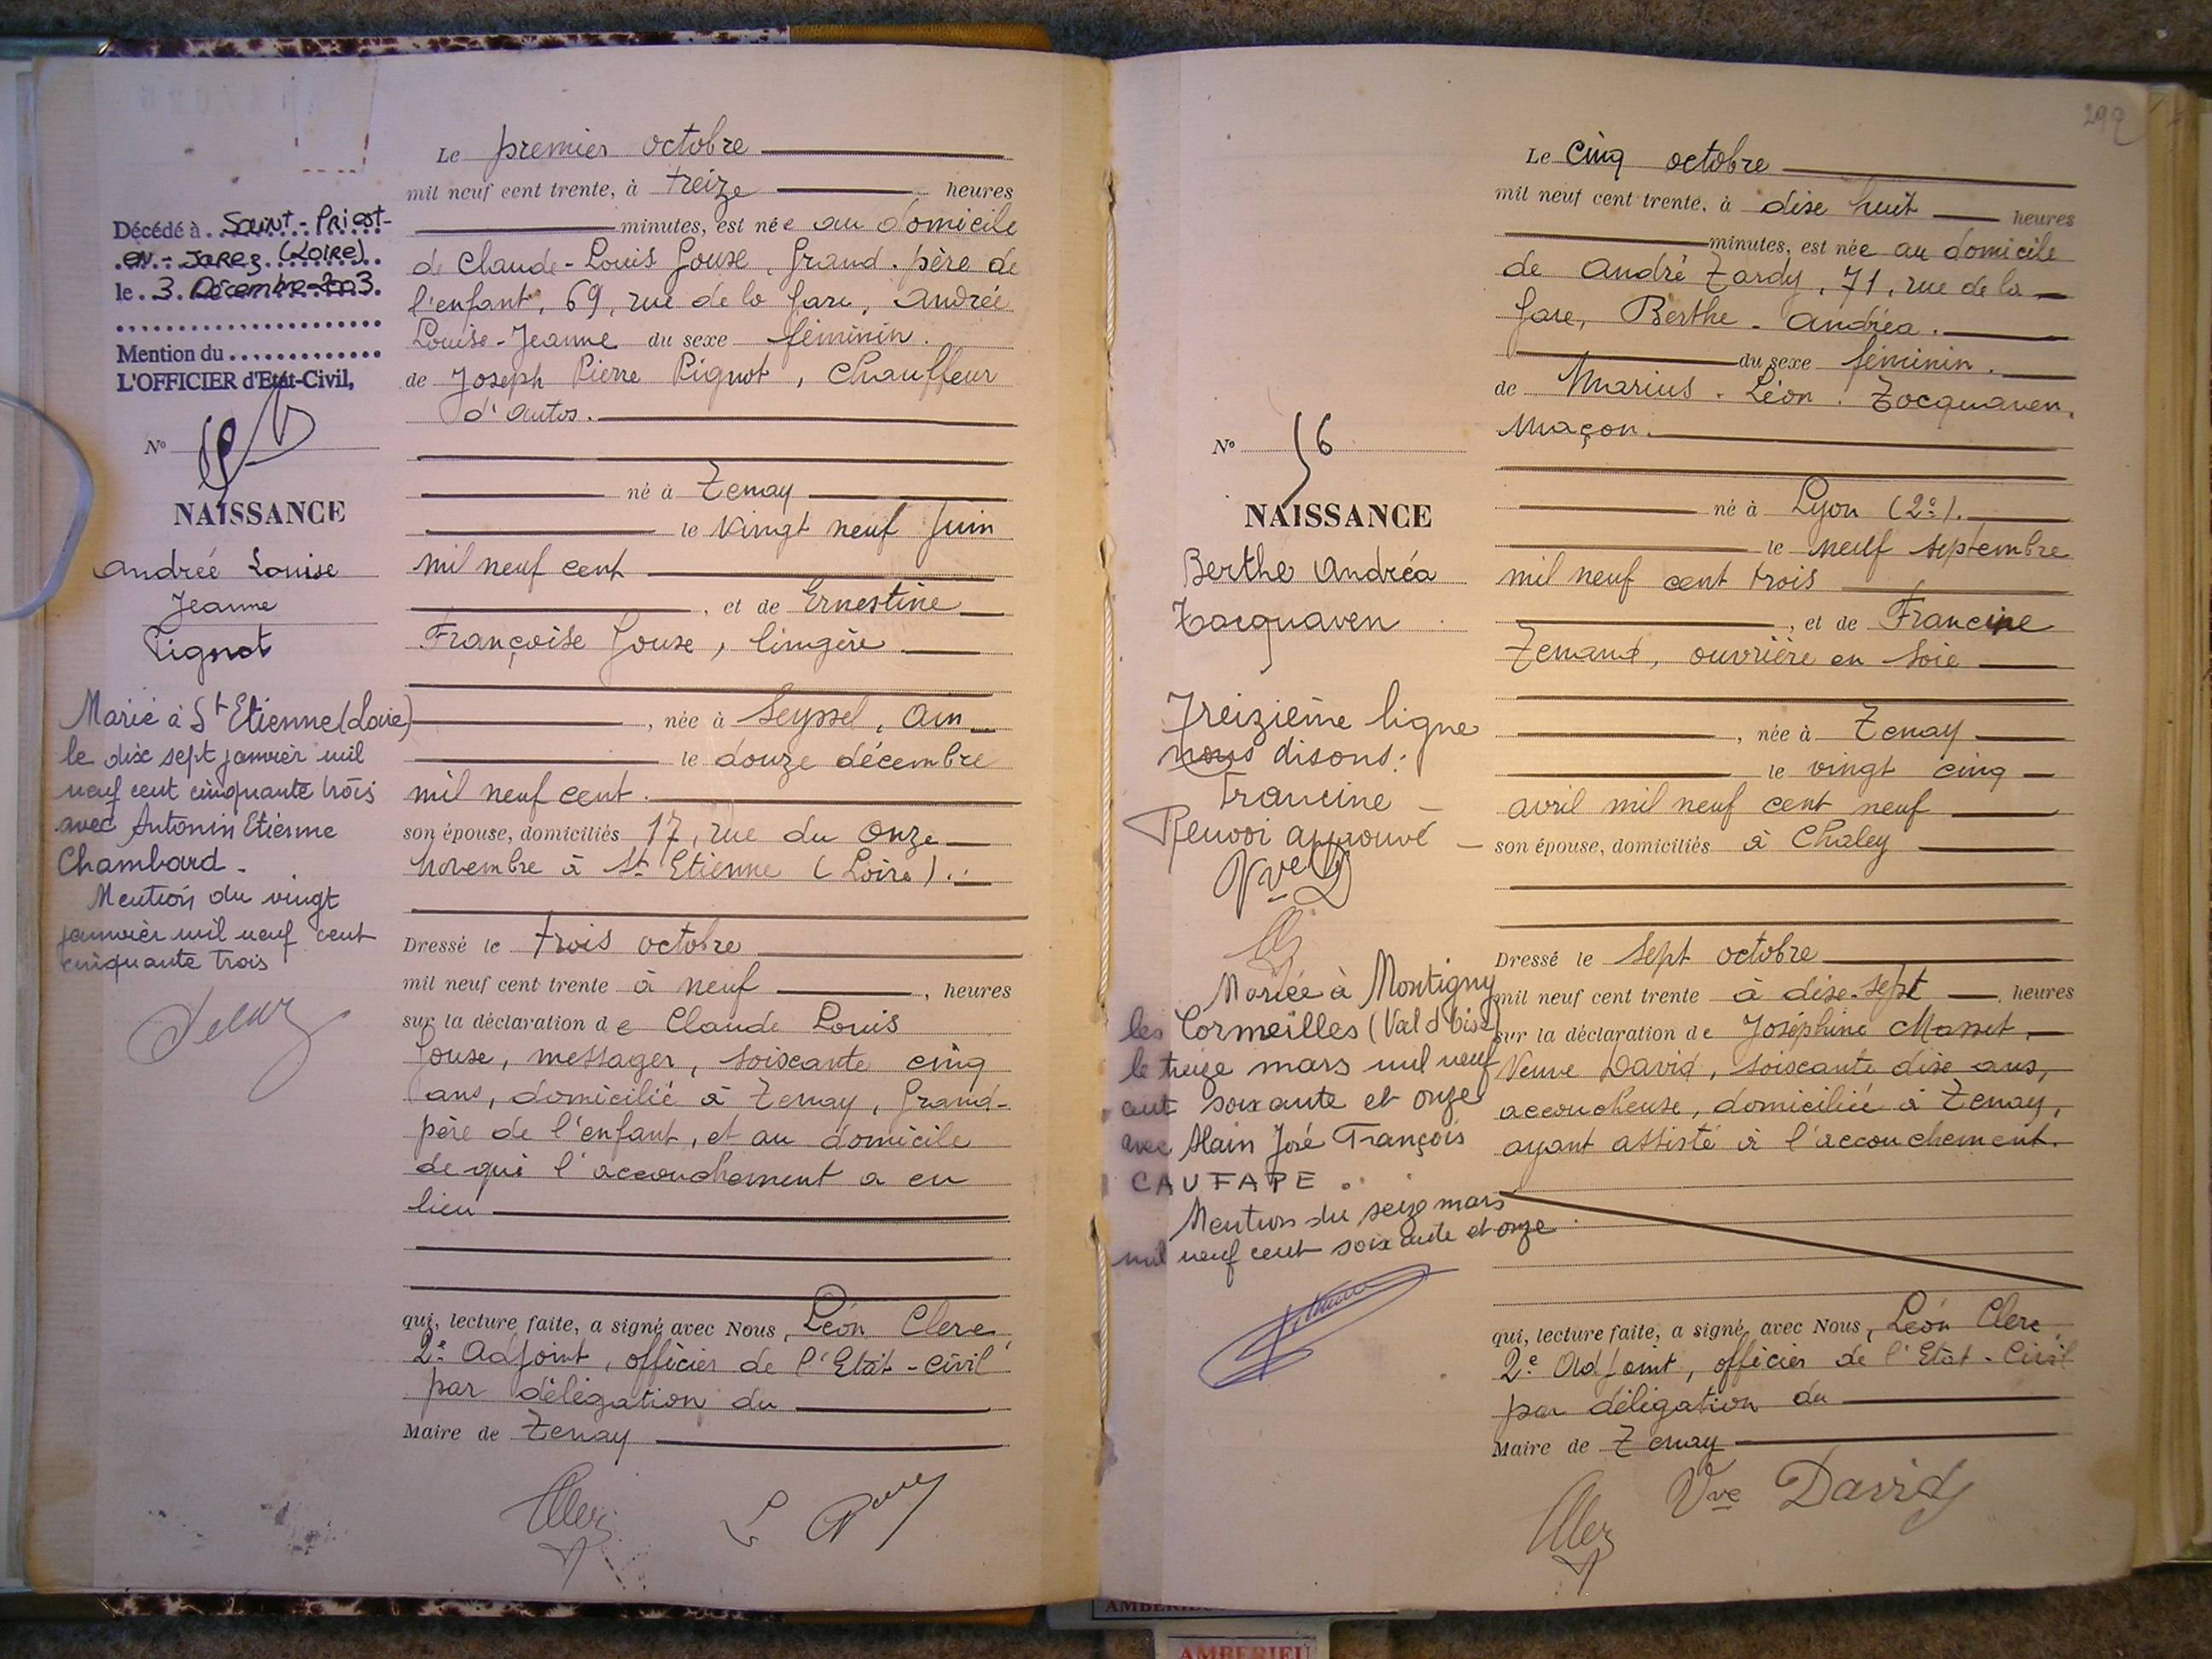 Décédé à Saint-Priest-
en-Jarez (Loire)
le 3 Décembre 2003
Mention du
L'OFFICIER d'Etat-Civil,
N°
NAISSANCE
Andrée Louise
Jeanne
Pignot
Marié à St Etienne (Loire)
le dix sept janvier mil
neuf cent cinquante trois
avec Antonin Etienne
Chambard.
Mention du vingt
janvier mil neuf cent
cinquante trois
Le premier octobre
mil neuf cent trente, à treize heures
minutes, est née au domicile
de Claude-Louis Gouse, Grand-père de
l'enfant, 69, rue de la Gare, Andrée
Louise-Jeanne du sexe féminin.
de Joseph Pierre Pignot, Chauffeur
d'autos.
né à Tenay
le vingt neuf Juin
mil neuf cent
, et de Ernestine
Françoise Gouse, lingère
, née à Seyssel, Ain
le douze décembre
mil neuf cent.
son épouse, domiciliés 17, rue du Onze
Novembre à St Etienne (Loire).
Dressé le trois octobre
mil neuf cent trente à neuf, heures
sur la déclaration de Claude Louis
Gouse, messager, soixante cinq
ans, domicilié à Tenay, Grand-
père de l'enfant, et au domicile
de qui l'accouchement a eu
lieu
qui, lecture faite, a signé avec Nous, Léon Clerc,
2e Adjoint, officier de l'Etat-Civil
par délégation du
Maire de Tenay
292
N° 56
NAISSANCE
Berthe Andréa
Tocquaven
Treizième ligne
nous disons:
Francine
Renvoi approuvé
Vve D
Mariée à Montigny
les Cormeilles (Val d'Oise)
le treize mars mil neuf
cent soixante et onze
avec Alain José François
CAUFAPE.
Mention du seize mars
mil neuf cent soixante et onze.
Le cinq octobre
mil neuf cent trente, à dix huit heures
minutes, est née au domicile
de André Tardy, 71, rue de la
Gare, Berthe-Andréa.
du sexe féminin.
de Marius-Léon Tocquaven,
Maçon.
né à Lyon (2e).
le neuf septembre
mil neuf cent trois
, et de Francine
ouvrière en soie
, née à Tenay
le vingt cinq
avril mil neuf cent neuf
son épouse, domiciliés à Chaley
Dressé le sept octobre
mil neuf cent trente à dix-sept, heures
sur la déclaration de Joséphine Masset,
Veuve David, soixante dix ans,
accoucheuse, domiciliée à Tenay,
ayant assisté à l'accouchement.
qui, lecture faite, a signé avec Nous, Léon Clerc,
2e Adjoint, officier de l'Etat-Civil
par délégation du
Maire de Tenay
Vve David
AMBERIEU
AMBERIEU